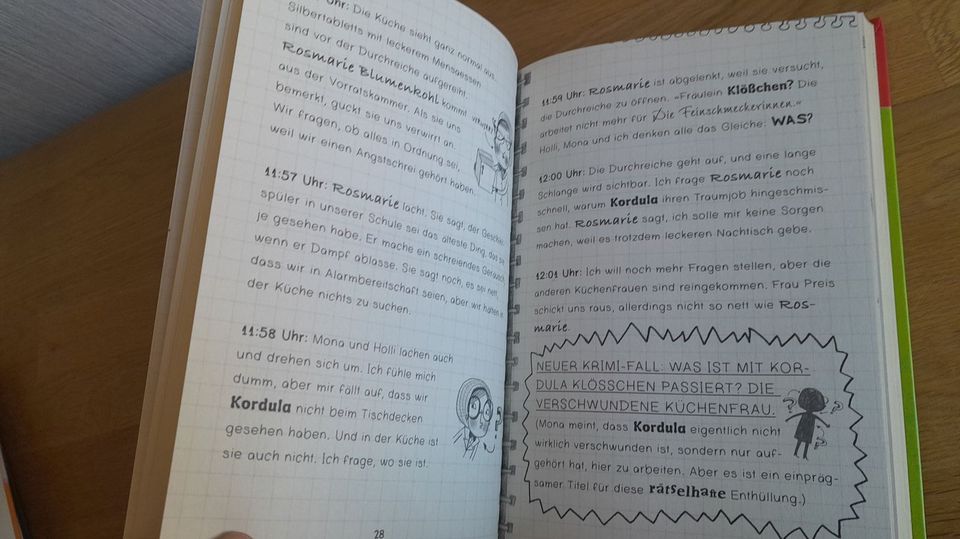 Uhr: Die Küche sieht ganz normal aus.
Silbertabletts mit leckerem Mensaessen
sind vor der Durchreiche aufgereiht.
Rosmarie Blumenkohl kommt
aus der Vorratskammer. Als sie uns
bemerkt, guckt sie uns verwirrt an.
Wir fragen, ob alles in Ordnung sei,
weil wir einen Angstschrei gehört haben.
11:57 Uhr: Rosmarie lacht. Sie sagt, der Geschirr-
spüler in unserer Schule sei das älteste Ding, das sie
je gesehen habe. Er mache ein schreiendes Geräusch,
wenn er Dampf ablasse. Sie sagt noch, es sei nett,
dass wir in Alarmbereitschaft seien, aber wir hätten in
der Küche nichts zu suchen.
11:58 Uhr: Mona und Holli lachen auch
und drehen sich um. Ich fühle mich
dumm, aber mir fällt auf, dass wir
Kordula nicht beim Tischdecken
gesehen haben. Und in der Küche ist
sie auch nicht. Ich frage, wo sie ist.
28
11:59 Uhr: Rosmarie ist abgelenkt, weil sie versucht,
die Durchreiche zu öffnen. »Fräulein Klößchen? Die
arbeitet nicht mehr für Die Feinschmeckerinnen.«
Holli, Mona und ich denken alle das Gleiche: WAS?
12:00 Uhr: Die Durchreiche geht auf, und eine lange
Schlange wird sichtbar. Ich frage Rosmarie noch
schnell, warum Kordula ihren Traumjob hingeschmis-
sen hat. Rosmarie sagt, ich solle mir keine Sorgen
machen, weil es trotzdem leckeren Nachtisch gebe.
12:01 Uhr: Ich will noch mehr Fragen stellen, aber die
anderen Küchenfrauen sind reingekommen. Frau Preis
schickt uns raus, allerdings nicht so nett wie Ros-
marie.
NEUER KRIMI-FALL: WAS IST MIT KOR-
DULA KLÖSSCHEN PASSIERT? DIE
VERSCHWUNDENE KÜCHENFRAU.
(Mona meint, dass Kordula eigentlich nicht
wirklich verschwunden ist, sondern nur auf-
gehört hat, hier zu arbeiten. Aber es ist ein einpräg-
samer Titel für diese rätselhafte Enthüllung.)